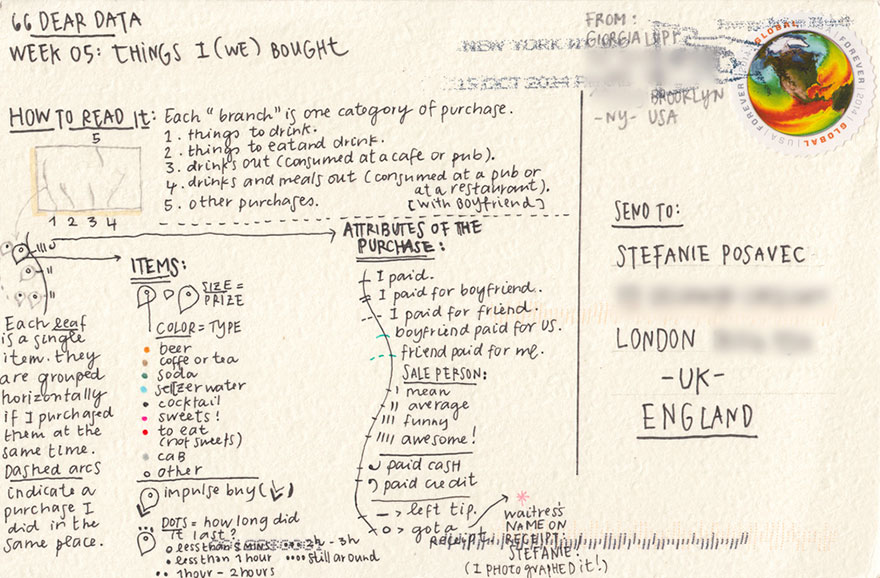 66 DEAR DATA
WEEK 05: THINGS I (WE) BOUGHT
FROM:
GIORGIA LUPI
BROOKLYN
-NY- USA
NEW YORK
15 OCT 2014
GLOBAL FOREVER 2014 GLOBAL USA FOREVER
HOW TO READ It: Each "branch" is one category of purchase.
1. things to drink.
2. things to eat and drink.
3. drinks out (consumed at a cafe or pub).
4. drinks and meals out (consumed at a pub or
at a restaurant).
5. other purchases. [with BOYfRiEND]
5
1 2 3 4
Each leaf
is a single
item. they
are grouped
horizontally
if I purchased
them at the
same time.
Dashed arcs
indicate a
purchase I
did in the
same place.
ITEMS:
SIZE =
PRIZE
COLOR = TYPE
beer
coffe or tea
soda
seltzer water
cocktail
sweets!
to eat
(not sweets)
caB
other
impulse buy (
)
DOTS = how long did
it last?
less than 5 MINS
2h - 3h
less than 1 hour
still around
1 hour - 2 hours
ATTRIBUTES OF THE
PURCHASE:
I paid.
I paid for boyfriend.
I paid for friend.
boyfriend paid for us.
friend paid for me.
SALE PERSON:
mean
average
funny
awesome!
paid cash
paid credit
— > left tip.
o > got a receipt
waitress's
NAME ON
RECEIPT:
STEFANIE.
(I PHOTOGRAPHED it!)
SEND TO:
STEFANIE POSAVEC
LONDON
-UK-
ENGLAND